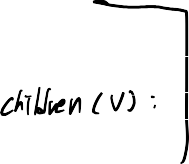 children (v) :